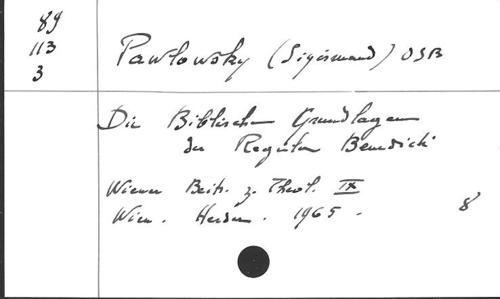 89
113
3
Pawlowsky (Sigismund) OSB
Die Biblischen Grundlagen
der Regula Benedicti
Wiener Beitr. z. Theol. IX
Wien. Herder. 1965.
8